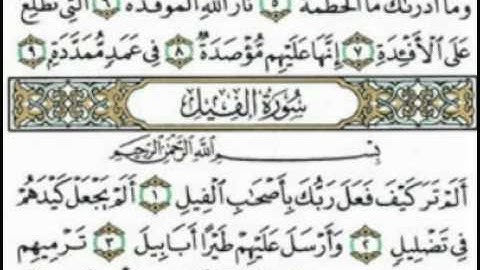 وَمَآ أَدْرَىٰكَ مَا ٱلْحُطَمَةُ ٥ نَارُ ٱللَّهِ ٱلْمُوقَدَةُ ٦ ٱلَّتِى تَطَّلِعُ
عَلَى ٱلْأَفْـِٔدَةِ ٧ إِنَّهَا عَلَيْهِم مُّؤْصَدَةٌ ٨ فِى عَمَدٍ مُّمَدَّدَةٍۭ ٩
سُورَةُ الْفِيلِ
بِسْمِ ٱللَّهِ ٱلرَّحْمَٰنِ ٱلرَّحِيمِ
أَلَمْ تَرَ كَيْفَ فَعَلَ رَبُّكَ بِأَصْحَٰبِ ٱلْفِيلِ ١ أَلَمْ يَجْعَلْ كَيْدَهُمْ
فِى تَضْلِيلٍ ٢ وَأَرْسَلَ عَلَيْهِمْ طَيْرًا أَبَابِيلَ ٣ تَرْمِيهِم